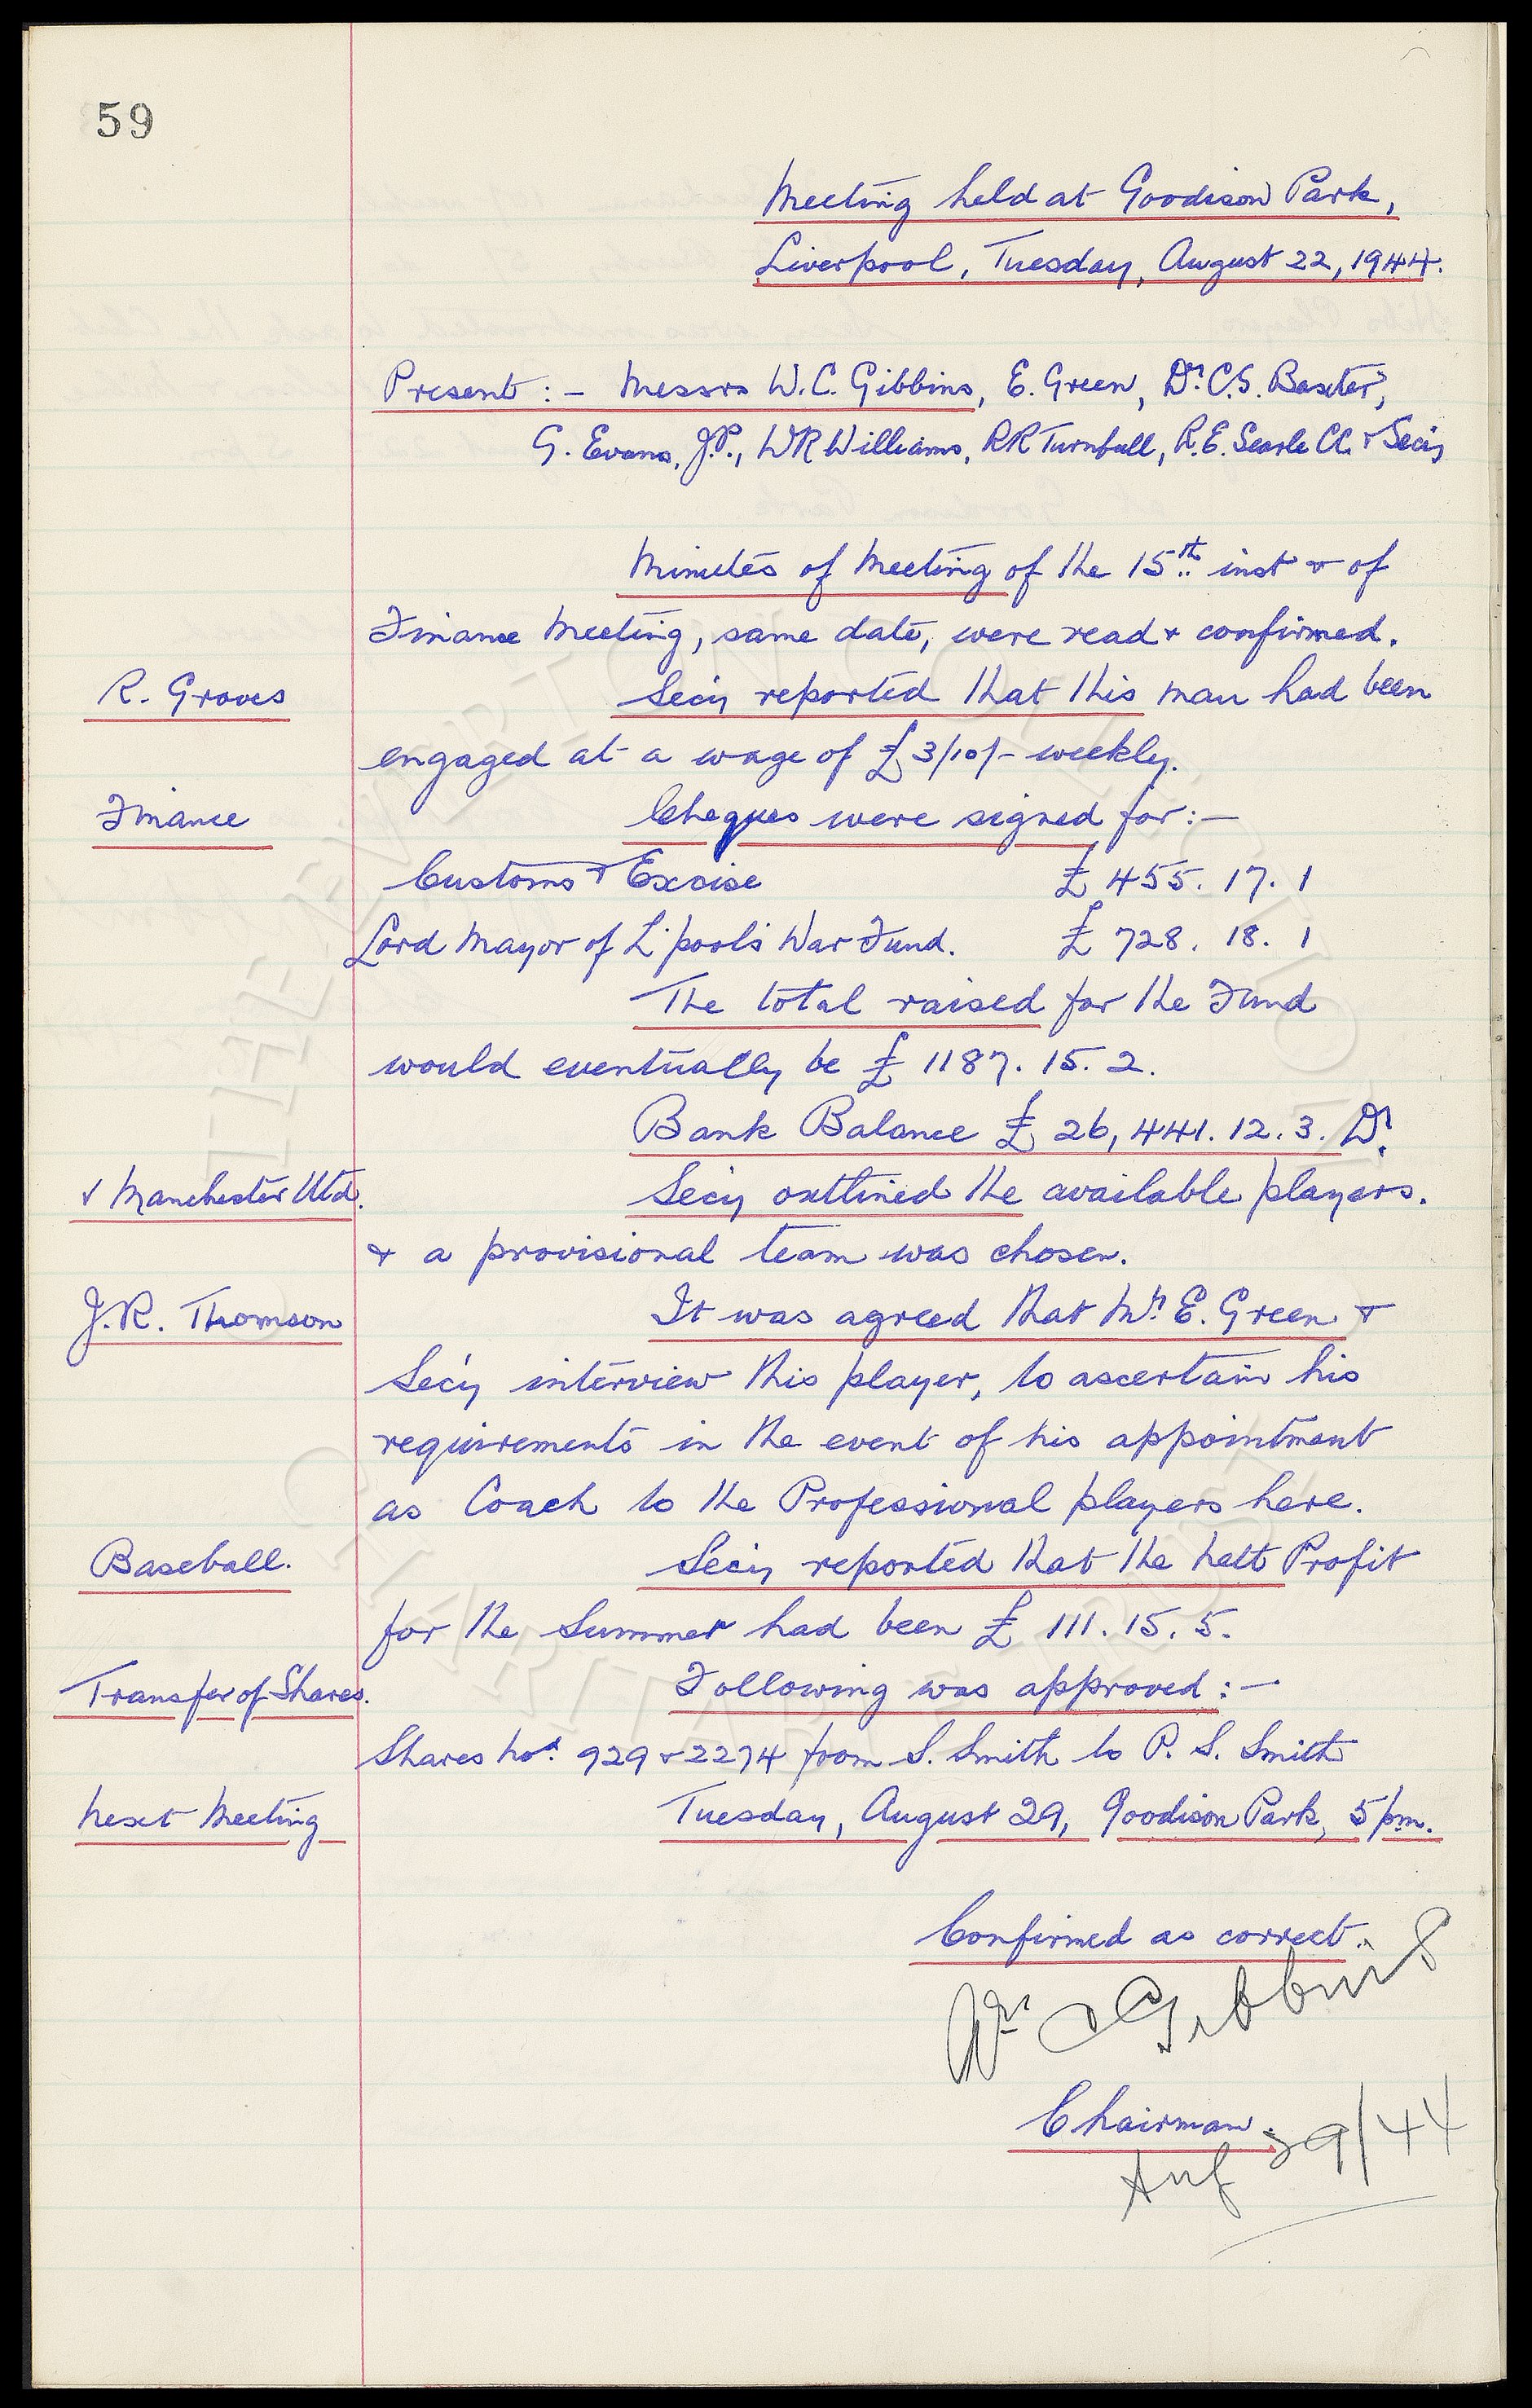 59
Meeting held at Goodison Park,
Liverpool, Tuesday, August 22, 1944.
Present :- Messrs W.C. Gibbins, E. Green, Dr. C.S. Baxter,
G. Evans, J.P., W R Williams, R R Turnbull, R.E. Searle CC. & Secy
Minutes of Meeting of the 15th inst & of
Finance Meeting, same date, were read & confirmed.
R. Graves Secy reported that this man had been
engaged at a wage of £3/10/- weekly.
Finance Cheques were signed for:-
Customs & Excise £ 455. 17. 1
Lord Mayor of L'pool's War Fund. £ 728. 18. 1
The total raised for the Fund
would eventually be £ 1187. 15. 2.
Bank Balance £ 26,441. 12. 3. Dr.
v Manchester Utd. Secy outlined the available players.
& a provisional team was chosen.
J.R. Thomson It was agreed that Mr. E. Green &
Sec'y interview this player, to ascertain his
requirements in the event of his appointment
as Coach to the Professional players here.
Baseball. Secy reported that the nett Profit
for the Summer had been £ 111. 15. 5.
Transfer of Shares. Following was approved :-
Shares Nos. 929 & 2274 from S. Smith to P. S. Smith
Next Meeting Tuesday, August 29, Goodison Park, 5 pm.
Confirmed as correct.
Wm C Gibbins
Chairman.
Aug 29/44